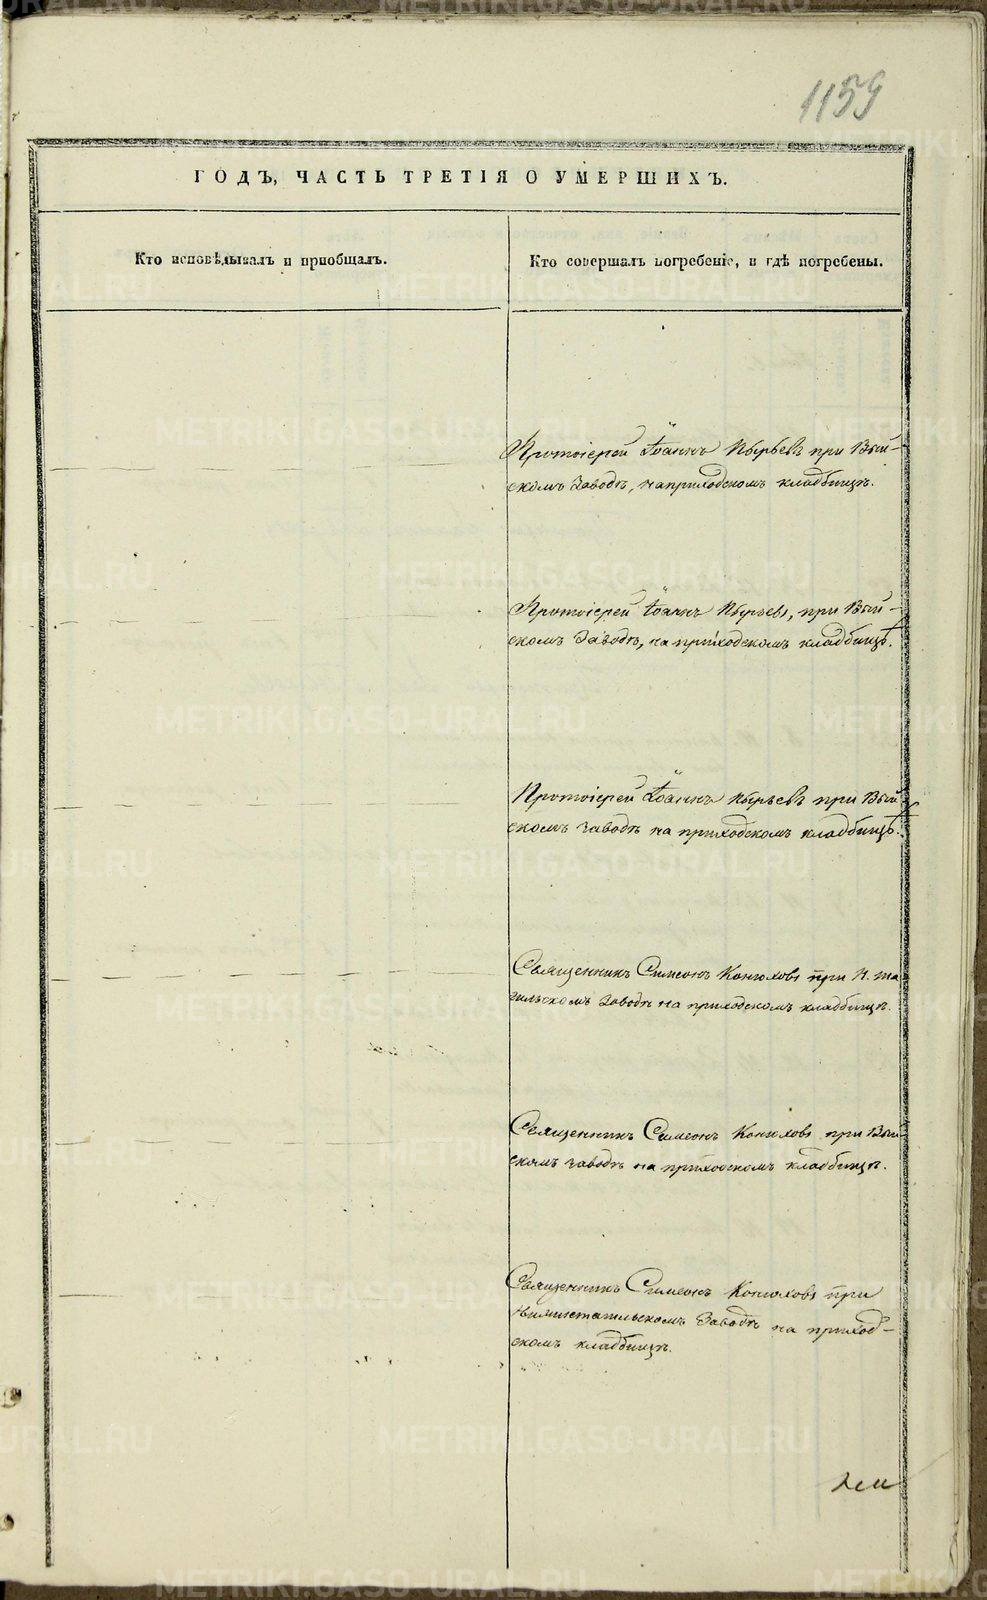 1159
ГОДЪ, ЧАСТЬ ТРЕТІЯ О УМЕРШИХЪ.
Кто исповѣдывалъ и пріобщалъ.
Кто совершалъ погребеніе, и гдѣ погребены.
Протоіерей Іоаннъ Пырьевъ при Вый-
скомъ Заводѣ, на приходскомъ кладбищѣ.
Протоіерей Іоаннъ Пырьевъ, при Вый-
скомъ Заводѣ, на приходскомъ кладбищѣ.
Протоіерей Іоаннъ Пырьевъ при Вый-
скомъ заводѣ на приходскомъ кладбищѣ.
Священникъ Симеонъ Конюховъ при Н. Та
гильскомъ Заводѣ на приходскомъ кладбищѣ.
Священникъ Симеонъ Конюховъ при Вый-
скомъ заводѣ на приходскомъ кладбищѣ.
Священникъ Симеонъ Конюховъ при
Нижнетагильскомъ Заводѣ на приход-
скомъ кладбищѣ.
METRIKI.GASO-URAL.RU